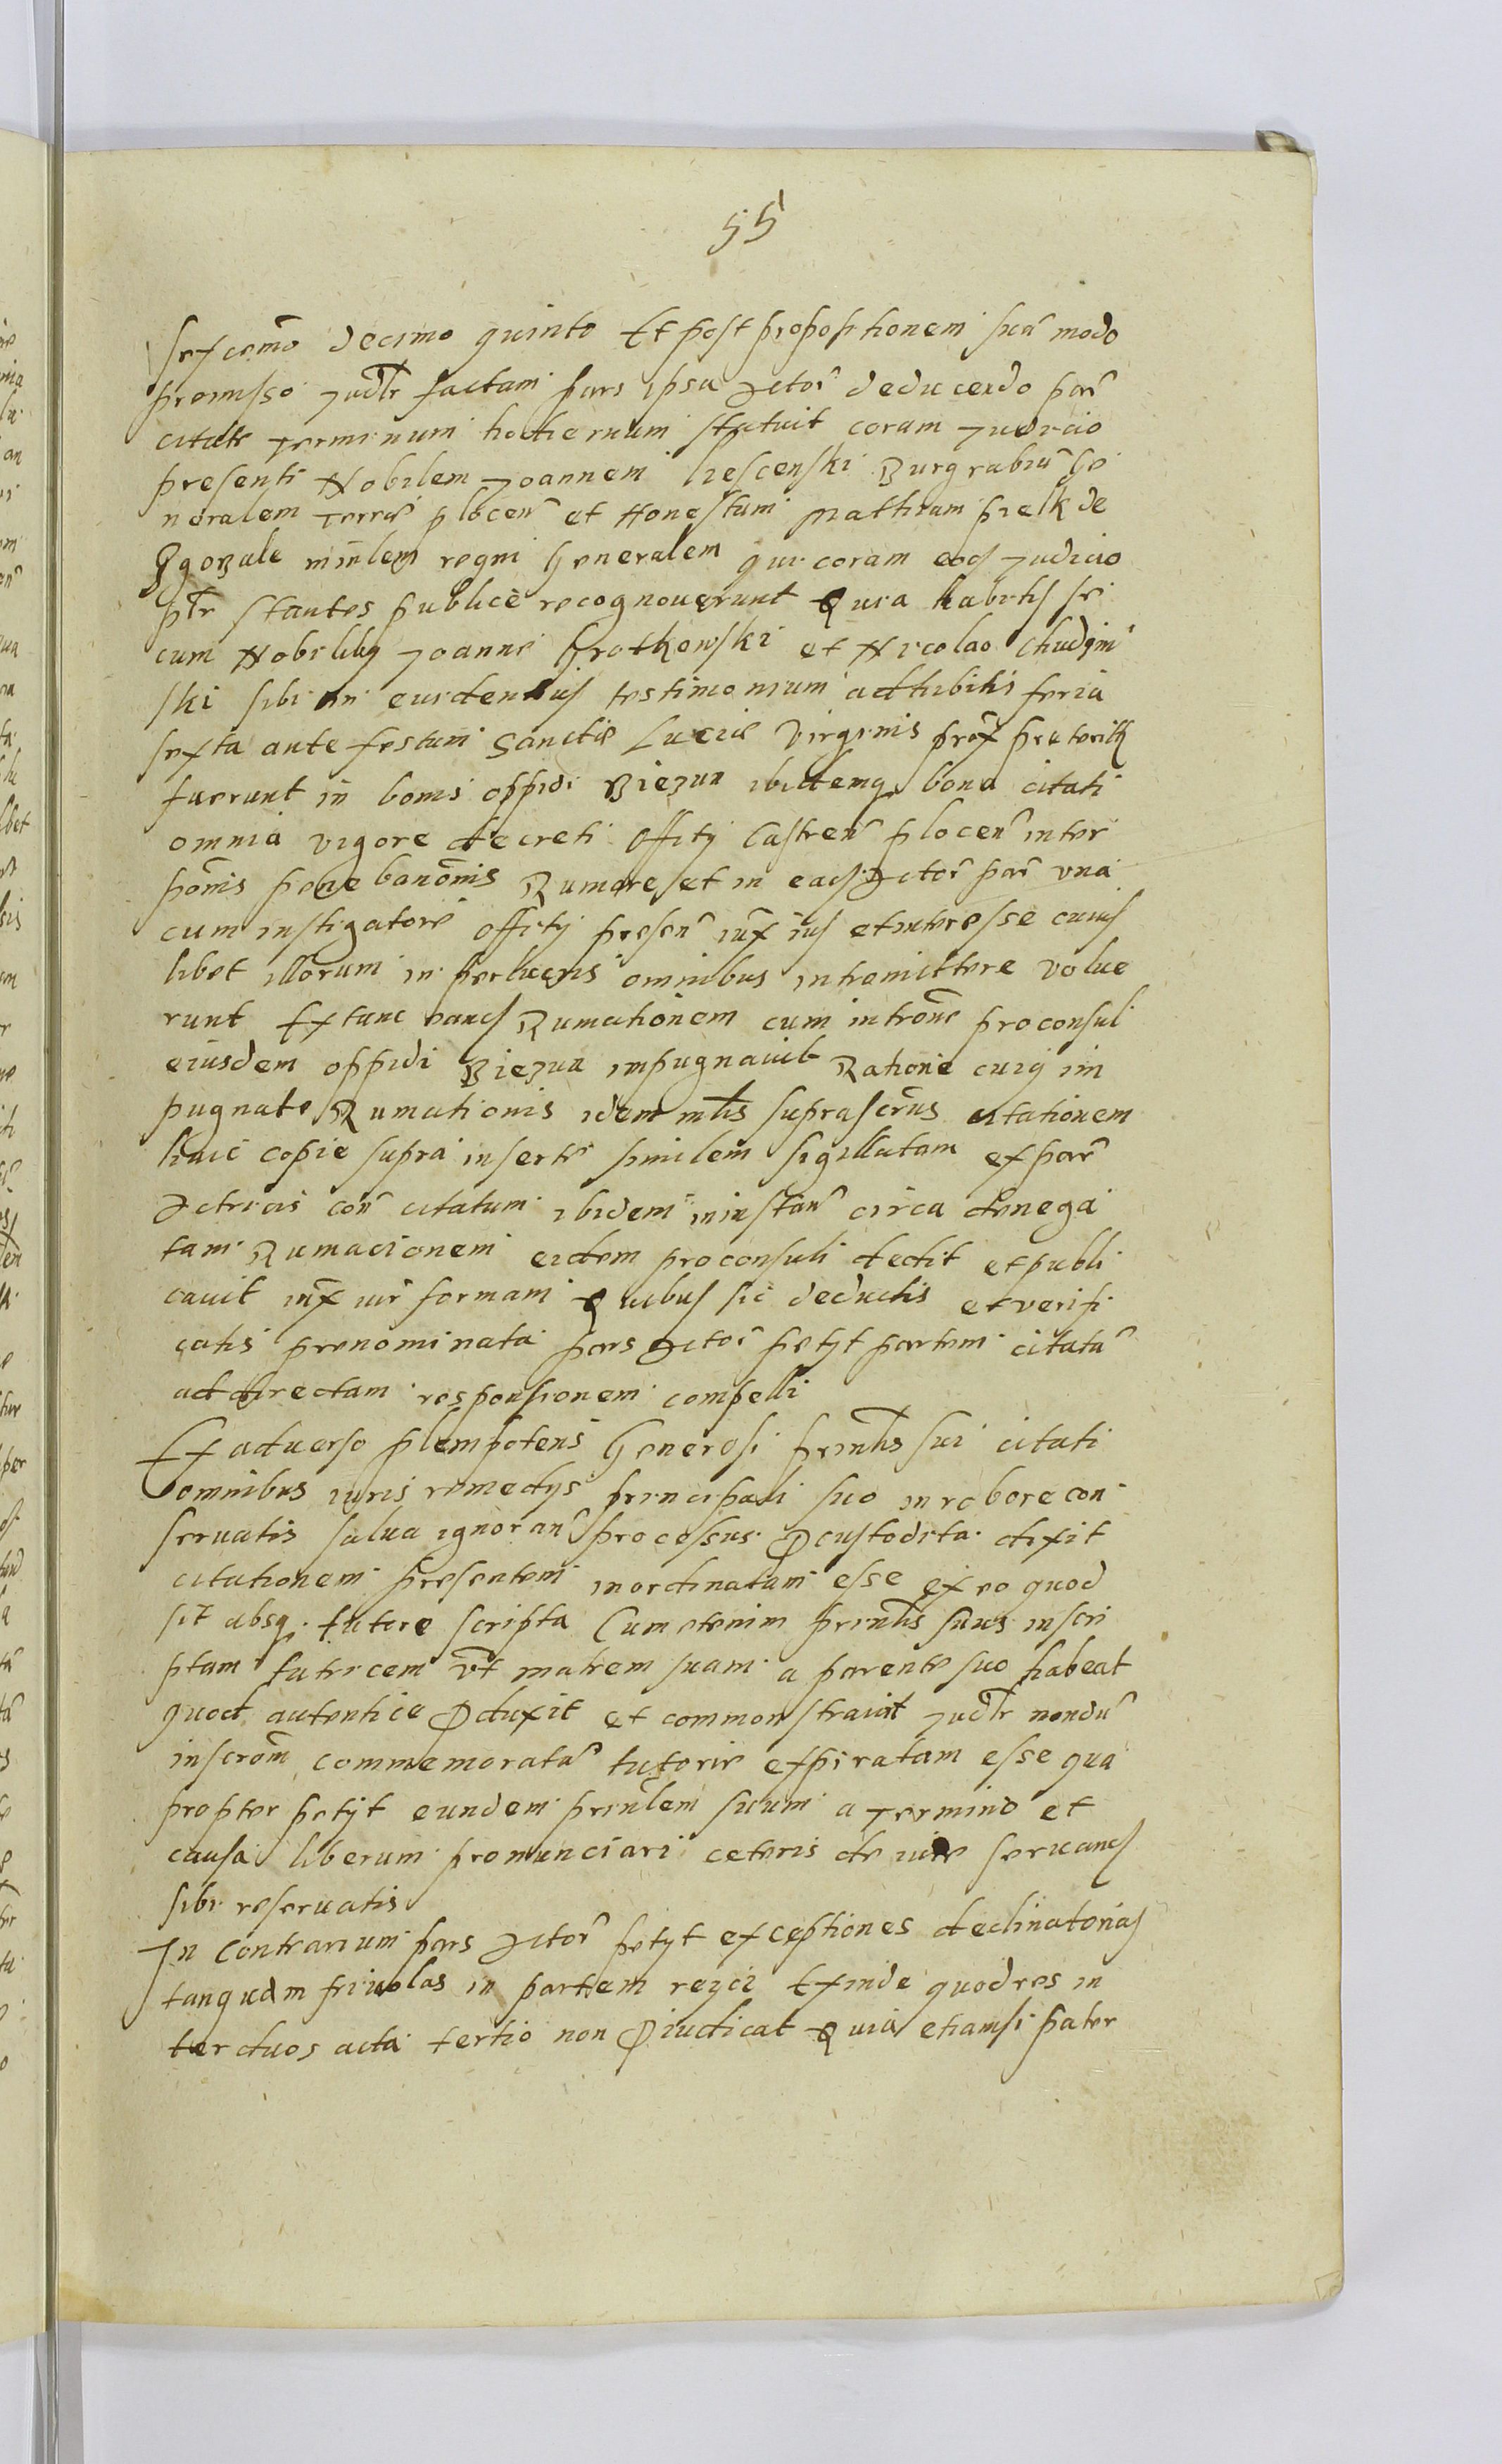 55
sexcemo decimo quinto Et post propositionem sua modo
premisso Judlr factam pars ipsa Actor deducendo par
citate Terminum hodiernum statuit coram Judicio
presenti Nobilem Joannem Liescenski Burgrabiu Ge
neralem Terre plocen et Honestum Mathiam pielk de
Zgorzale minlem regni Generalem qui coram eod Judicio
plr stantes publice recognoverunt Quia habitis se
cum Nobilibq Joanne Grotkowski et Nicolao Chudzin
ski sibi in euidentius testimonium adhibitis feria
sexta ante festum Sanctae Luciae Virginis prox preterita
fuerunt in bonis oppidi Biezun ibidemq bona citati
omnia vigore decreti Offity Castren plocen inter
ponis pene banonis Rumare et in eas Actor par vna
cum instigatore offity presen iux ius et interesse cuius
libet illorum in pertinens omnibus intromittere volue
runt Ex tunc eand Rumationem cum introne proconsul
eiusdem oppidi Biezun impugnauit Ratione cuiq im
pugnate Rumationis idem mlis suprascrius citationem
huic copie supra inserte similem sigillatam ex par
Actricis con citatum ibidem in instan circa denega
tam Rumacionem eidem proconsuli dedit et publi
cauit iux iur formam Quibus sic deductis et verifi
catis prenominata pars Actor petyt partem citata
ad directam responsionem compelli
Ex aduerso plempotens Generosi prinlis sui citati
omnibus iuris remedys principali suo in robore con
seruatis salua ignoran processus pcustodita dixit
citationem presentem inordinatam esse ex eo quod
sit absq tutore scripta Cum etenim prinlis suus inscri
ptam tutricem vt matrem suam a parente suo habeat
quod autentice pduxit et commonstrauit Judlr nondu
inscrom commemorata tutorie expiratam esse qua
propter petyt eundem prinlem suum a Termino et
causa liberum pronunciari ceteris de iure seruand
sibi reseruatis
In Contrarium pars Actor petyt exceptiones declinatorias
tanquam friuolas in partem reijci Exinde quod res in
ter duos acta tertio non piudicat Quia etiamsi pater